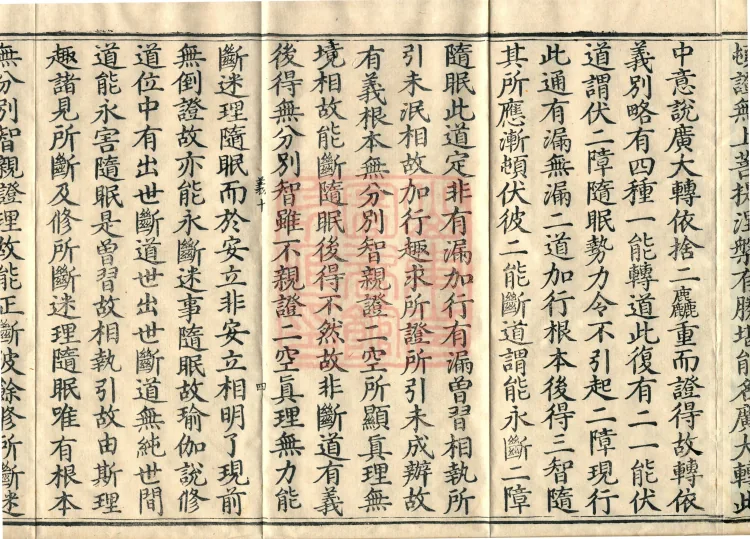 頓證無上菩提涅槃有勝堪能後廣大轉此
中意說廣大轉依捨二麤重而證得故轉依
義別略有四種一能轉道此復有二一能伏
道謂伏二障隨眠勢力令不引起二障現行
此通有漏無漏二道加行根本後得三智隨
其所應漸頓伏彼二能斷道謂能永斷二障
隨眠此道定非有漏加行有漏曾習相執所
引未泯相故加行趣求所證所引未成辦故
有義根本無分別智親證二空所顯真理無
境相故能斷隨眠後得不然故非斷道有義
後得無分別智雖不親證二空真理無力能
義十
四
斷迷理隨眠而於安立非安立相明了現前
無倒證故亦能永斷迷事隨眠故瑜伽說修
道位中有出世斷道世出世斷道無純世間
道能永害隨眠是曾習故相執引故由斯理
趣諸見所斷及修所斷迷理隨眠唯有根本
無分別智親證理故能正斷彼餘修所斷迷